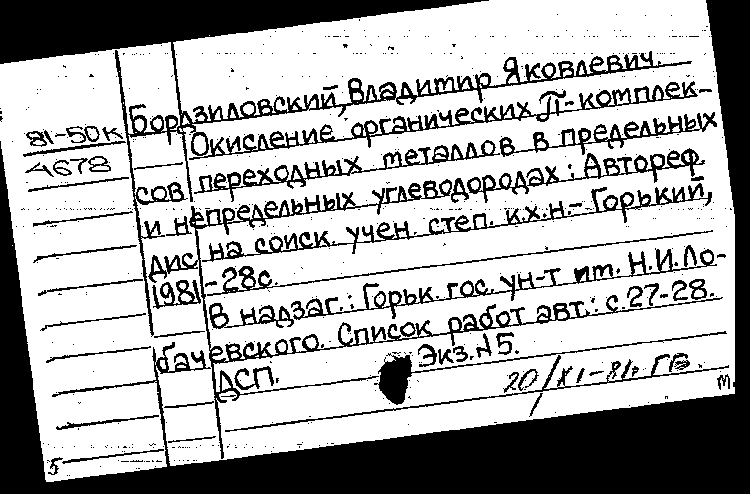 81-50к
4678
Бордзиловский, Владимир Яковлевич.
Окисление органических П-комплек-
сов переходных металлов в предельных
и непредельных углеводородах: Автореф.
дис на соиск. учен. степ. к.х.н.- Горький,
1981 -28с.
В надзаг.: Горьк. гос. ун-т им. Н.И.Ло-
бачевского. Список работ авт.: с.27-28.
ДСП. Экз.№5.
20/XI-81г. ГБ.
м.
5